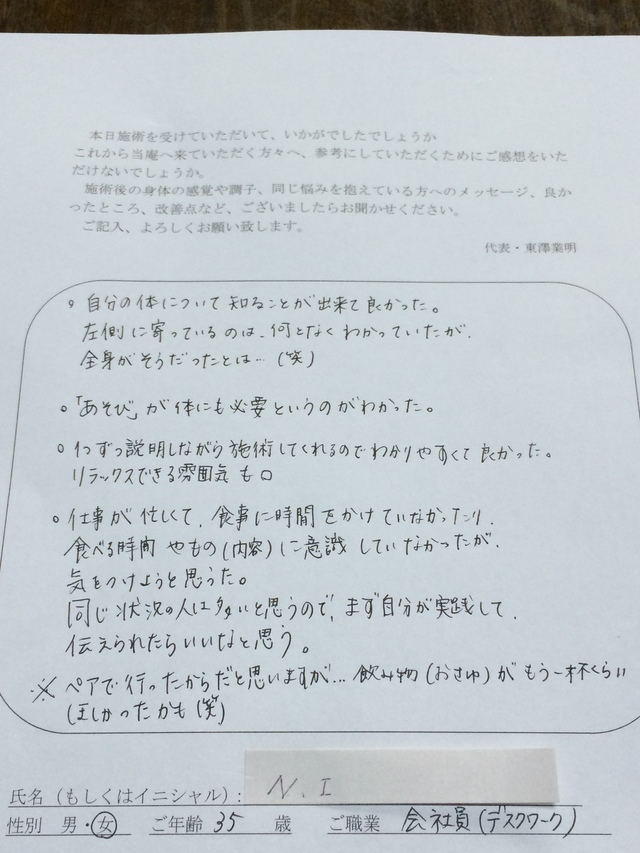 本日施術を受けていただいて、いかがでしたでしょうか
これから当庵へ来ていただく方々へ、参考にしていただくためにご感想をいた
だけないでしょうか。
施術後の身体の感覚や調子、同じ悩みを抱えている方へのメッセージ、良か
ったところ、改善点など、ございましたらお聞かせください。
ご記入、よろしくお願い致します。
代表・東澤業明
。自分の体について知ることが出来て良かった。
左側に寄っているのは、何となくわかっていたが、
全身がそうだったとは…(笑)
。「あそび」が体にも必要というのがわかった。
。1つずつ説明しながら施術してくれるのでわかりやすくて良かった。
リラックスできる雰囲気も○
。仕事が忙しくて、食事に時間をかけていなかったり、
食べる時間やもの(内容)に意識していなかったが、
気をつけようと思った。
同じ状況の人は多いと思うので、まず自分が実践して、
伝えられたらいいなと思う。
※ペアで行ったからだと思いますが…飲み物(おさゆ)がもう一杯くらい
ほしかったかも(笑)
氏名（もしくはイニシャル）: N.I
性別 男・女 ご年齢 35 歳 ご職業 会社員(デスクワーク)